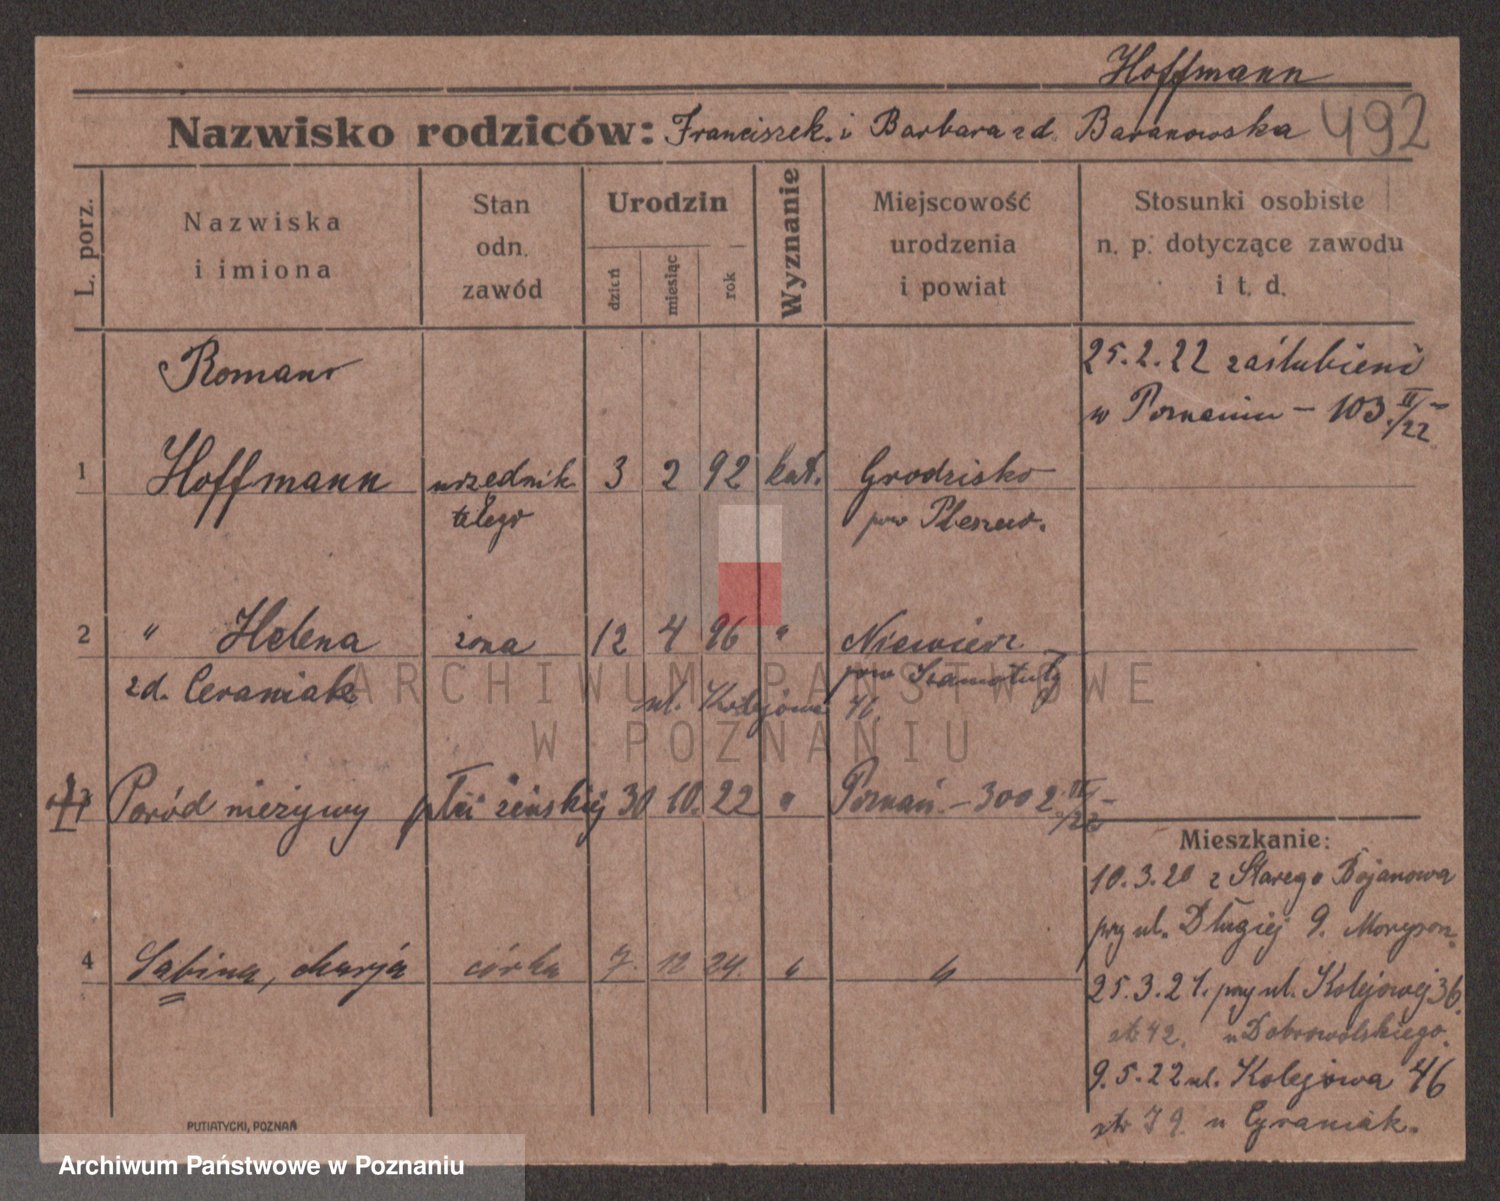 Hoffmann
Nazwisko rodziców: Franciszek i Barbara zd. Baranowska 492
L. porz.
Nazwiska
i imiona
Stan
odn.
zawód
Urodzin
dzień
miesiąc
rok
Wyznanie
Miejscowość
urodzenia
i powiat
Stosunki osobiste
n. p. dotyczące zawodu
i t. d.
Roman
25.2.22 zaślubieni
w Poznaniu - 103 II/22
1 Hoffmann urzędnik 3 2 92 kat. Grodzisko
pow Pleszew.
2 " Helena żona 12 4 96 " Niewierz
zd. Ceraniak pow Szamotuły
ul. Kolejowa 46.
3 Poród nieżywy płci żeńskiej 30 10. 22 " Poznań - 3002
4 Sabina, Marja córka 7. 12 24. " "
Mieszkanie:
10.3.20 z Starego Bojanowa
przy ul. Długiej 9.
25.3.21. przy ul. Kolejowej 36.
str 42. u Dobrowolskiego.
9.5.22 ul. Kolejowa 46
str 79 u Cyraniak.
PUTIATYCKI, POZNAŃ
ARCHIWUM PAŃSTWOWE
W POZNANIU
Archiwum Państwowe w Poznaniu